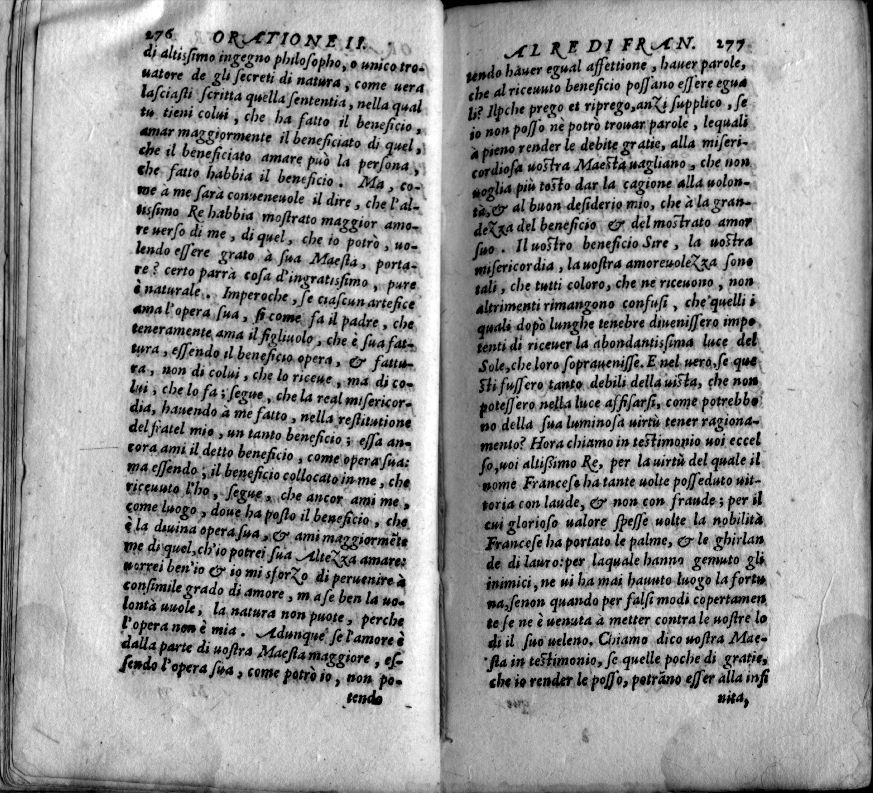 276 ORATIONE II.
di altissimo ingegno philosopho, o unico tro-
uatore de gli secreti di natura, come uera
lasciasti scritta quella sententia, nella qual
tu tieni colui, che ha fatto il beneficio,
amar maggiormente il beneficiato di quel,
che il beneficiato amare può la persona,
che fatto habbia il beneficio. Ma, co-
me à me sarà conueneuole il dire, che l'al-
tissimo Re habbia mostrato maggior amo-
re uerso di me, di quel, che io potrò, uo-
lendo essere grato à sua Maestà, porta-
re? certo parrà cosa d'ingratissimo, pure
è naturale. Imperoche, se ciascun artefice
ama l'opera sua, si come fa il padre, che
teneramente ama il figliuolo, che è sua fat-
tura, essendo il beneficio opera, & fattu-
ra, non di colui, che lo riceue, ma di co-
lui, che lo fa; segue, che la real misericor-
dia, hauendo à me fatto, nella restitutione
del fratel mio, un tanto beneficio; essa an-
cora ami il detto beneficio, come opera sua:
ma essendo; il beneficio collocato in me, che
riceuuto l'ho, segue, che ancor ami me,
come luogo, doue ha posto il beneficio, che
è la diuina opera sua, & ami maggiormẽte
me di quel, ch'io potrei sua Altezza amare:
uorrei ben'io & io mi sforzo di peruenire à
consimile grado di amore, ma se ben la uo-
lontà uuole, la natura non puote, perche
l'opera non è mia. Adunque se l'amore è
dalla parte di uostra Maesta maggiore, es-
sendo l'opera sua, come potrò io, non po-
tendo
AL RE DI FRAN. 277
tendo hauer egual affettione, hauer parole,
che al riceuuto beneficio possano essere egua
li? Ilpche prego et riprego, anzi supplico, se
io non posso nè potrò trouar parole, lequali
à pieno render le debite gratie, alla miseri-
cordiosa uostra Maestà uagliano, che non
uoglia più tosto dar la cagione alla uolon-
tà, & al buon desiderio mio, che à la gran-
dezza del beneficio & del mostrato amor
suo. Il uostro beneficio Sire, la uostra
misericordia, la uostra amoreuolezza sono
tali, che tutti coloro, che ne riceuono, non
altrimenti rimangono confusi, che quelli i
quali dopò lunghe tenebre diuenissero impo
tenti di riceuer la abondantissima luce del
Sole, che loro soprauenisse. E nel uero, se que
sti fussero tanto debili della uista, che non
potessero nella luce affisarsi, come potrebbo
no della sua luminosa uirtù tener ragiona-
mento? Hora chiamo in testimonio uoi eccel
so, uoi altissimo Re, per la uirtù del quale il
nome Francese ha tante uolte posseduto uit-
toria con laude, & non con fraude; per il
cui glorioso ualore spesse uolte la nobilità
Francese ha portato le palme, & le ghirlan
de di lauro: per laquale hanno gemuto gli
inimici, ne ui ha mai hauuto luogo la fortu
na, senon quando per falsi modi copertamen
te se ne è uenuta à metter contra le uostre lo
di il suo ueleno. Chiamo dico uostra Mae-
sta in testimonio, se quelle poche di gratie,
che io render le posso, potrãno esser alla infi
nita,